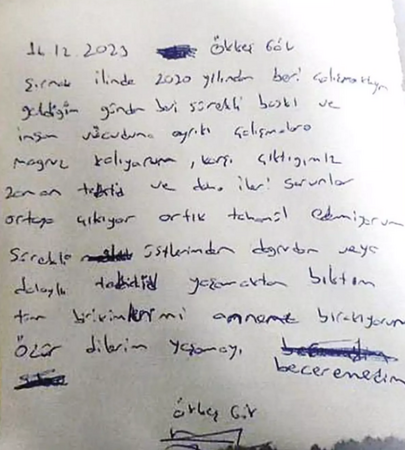 16.12.2023 Ökkeş Gök
Şırnak ilinde 2020 yılından beri çalışmaktayım
geldiğim günden beri sürekli baskı ve
insan vücuduna aykırı çalışmalara
magruz kalıyorum, karşı çıktığımız
zaman tehtid ve daha ileri sorunlar
ortaya çıkıyor artık tahamül edemiyorum
Sürekli üstlerimden doğrudan veya
dolaylı tehtid yaşamaktan bıktım
tüm birikimlerimi anneme bırakıyorum
Özür dilerim yaşamayı
beceremedim
Ökkeş Gök